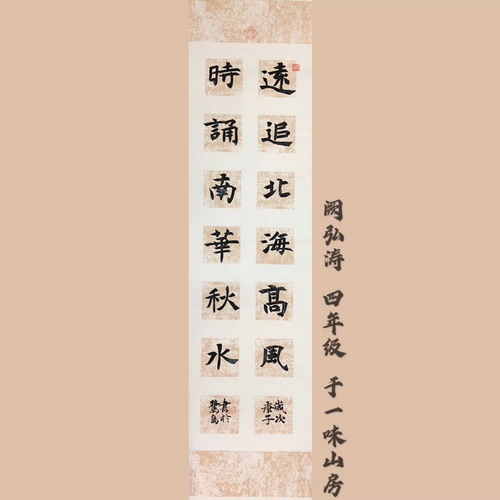 遠追北海高風
時誦南華秋水
歲次庚子
書於鷺島
阙弘涛 四年级 于一味山房